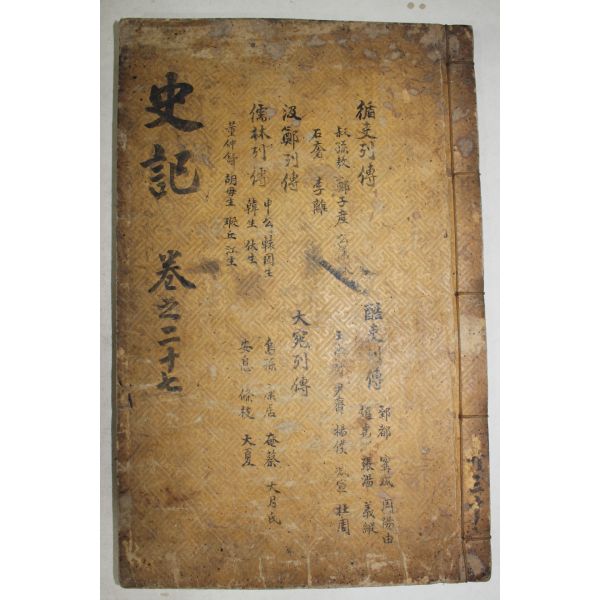 史記 卷之二十七
循吏列傳
叔孫敖 鄭子産 公儀休
石奢 李離
汲鄭列傳
儒林列傳
申公 轅固生
韓生 伏生
董仲舒 胡毋生 瑕丘江生
酷吏列傳
郅都 寗成 周陽由
趙禹 張湯 義縱
王溫舒 尹齊 楊僕 减宣 杜周
大宛列傳
烏孫 康居 奄蔡 大月氏
安息 條枝 大夏